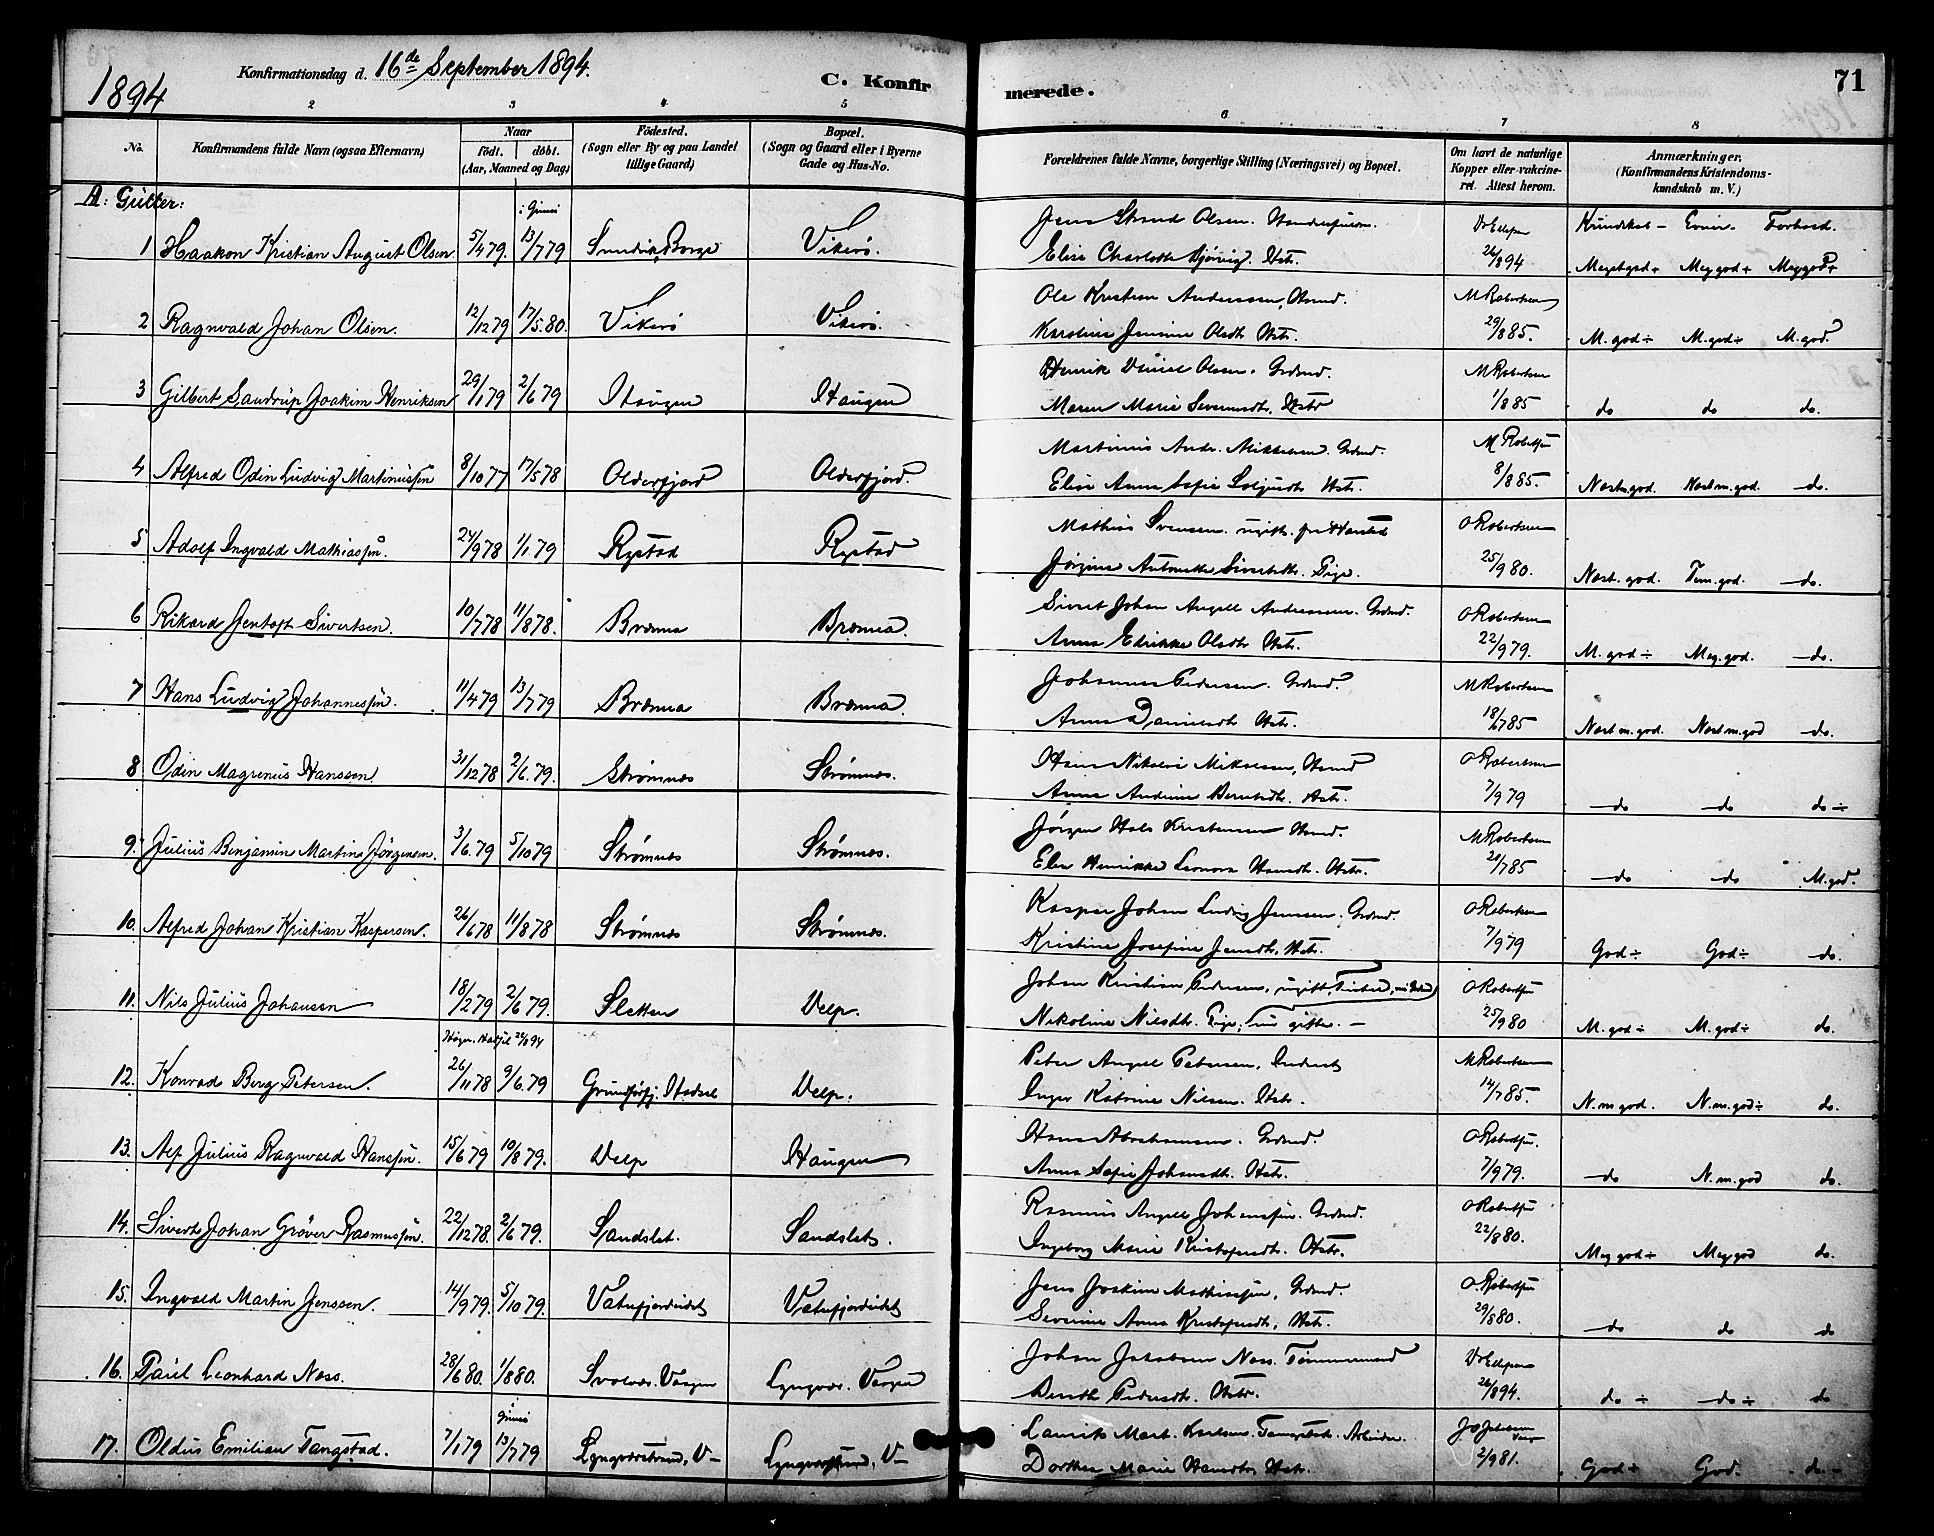 1894
Konfirmationsdag d. 16de September 1894.
C. Konfir
merede.
71
2 3 4 5 6 7 8
No.
Konfirmandens fulde Navn (ogsaa Efternavn)
Naar
født. døbt.
(Aar, Maaned og Dag)
Fødested.
(Sogn eller By og paa Landet
tillige Gaard)
Bopæl.
(Sogn og Gaard eller i Byerne
Gade og Hus-No.
Forældrenes fulde Navne, borgerlige Stilling (Næringsvei) og Bopæl.
Om havt de naturlige
Kopper eller vakcine-
ret. Attest herom.
Anmærkninger.
(Konfirmandens Kristendoms-
kundskab m. V.)
A: Gutter:
1 Haakon Kristian August Olsen 5/4 79. i Gimsø 13/7 79 Borge Vikerø.
Jens Strand Olsen.
Elise Charlotte Hstr. 26/8 94
Kundskab - Evner. Forhold.
Megetgod + Meg god + Meg god +
2 Ragnvald Johan Olsen. 12/12 79 17/5 80. Vikerø Vikerø.
Ole Kristian Anderssen, Husmd.
Karoline Jensine Olsdtr Hstr.
M Robertsen 29/8 85. M. god ÷ M. god ÷ M. god.
3 Gilbert Sandrup Joakim Henriksen 29/1 79 2/6 79 Haugen Haugen
Henrik Daniel Olsen. Grdmd.
Maren Marie Hstr
M Robertsen 1/8 85 do do do.
4 Alfred Odin Ludvig Martinussen 8/10 77 17/5 78 Olderfjord Olderfjord.
Martinus Andr. Mikkelsen Grdmd.
Elise Anna Sofie Hstr.
M Robertsen 8/8 85. Næst m. god. Næst m. god. do.
5 Adolf Ingvald Mathiassen. 24/9 78 1/1 79 Rystad Rystad
Mathias Svensen. ugift.
Jørgine Antonette Sivertsdtr. Pige.
O Robertsen 25/9 80. Næst. god. Tem. god. do.
6 Rikard Jentoft Sivertsen. 10/7 78 11/8 78. Brenna Brenna.
Sivert Johan Angell Andreassen. Grdmd.
Anna Elrikke Olsdtr Hstr.
O Robertsen 22/9 79. M. god ÷ Meg. god. do.
7 Hans Ludvig Johannessen. 11/4 79 13/7 79 Brenna Brenna.
Johannes Pedersen. Grdmd.
Anna Danielsdtr Hstr.
M Robertsen 18/7 85 Næst m. god. Næst m. god do.
8 Odin Magrenius Hanssen. 31/12 78 2/6 79. Strømnes Strømnes.
Hans Nikolai Mikalsen, Husmd
Anna Andrine Berntsdtr. Hstr.
O Robertsen 7/9 79 do do do ÷
9. Julius Benjamin Martins Jørgensen. 3/6 79 5/10 79 Strømnes Strømnes.
Jørgen Hals Kristensen Husmd.
Elen Henrikke Leonora Hansdtr. Hstr.
M Robertsen 20/7 85 do do M. god.
10. Alfred Johan Kristian Kaspersen. 26/6 78 11/8 78 Strømnes Strømnes.
Kasper Johan Ludvig Jensen. Grdmd.
Kristine Josefine Jensdtr, Hstr.
O Robertsen 7/9 79 God ÷ God ÷ do.
11. Nils Julius Johansen 18/2 79 2/6 79. Sletten Velp.
Johan Kristian Pedersen, ugift,
Nikoline Nilsdtr. Pige; nu gifte.
O Robertsen 25/9 80 M. god ÷ M. god ÷ do.
12. Konrad Berg Petersen. 26/11 78 9/6 79 Grundførfj. Hadsel Velp.
Peter Angell Petersen, Inderst
Inger Katrine Nilsen. Hstr.
M Robertsen 14/7 85. N. m god. N. m. god ÷ do.
13. Alf Julius Ragnvald Hanssen. 15/6 79 10/8 79. Velp Haugen
Hans Abrahamsen. Grdmd.
Anna Sofie Johansdtr. Hstr.
O Robertsen. 7/9 79. do N. m. god do.
14. Sivert Johan Grøver Rasmussen. 22/12 78. 2/6 79. Sandslet. Sandslet.
Rasmus Angell Johanssen. Grdmd.
Ingeborg Marie Kristofersdtr. Hstr.
O Robertsen 22/8 80. Meg god ÷ Meg god do.
15. Ingvald Martin Jenssen. 14/9 79. 5/10 79. Vatnfjordeidet Vatnfjordeidet
Jens Joakim Mathiassen, Grdmd.
Severine Anna Kristofersdtr, Hstr.
O. Robertsen 29/8 80. do do do
16. Paul Leonhard Næss. 28/6 80. 1/8 80. Svolvær. Vaagen Lyngvær. Vaagen
Johan Jakobsen Næss. Tømmermand
Pedersdtr. Hstr.
26/8 94. do ÷ do ÷ do
17. Oldus Emilian Tangstad. 7/1 79 i Gimsø 13/7 79 Lyngværstrand, V— Lyngværstrand, V—
Laurits Mart. Karlsen Tangstad. Arbeider.
Dorthea Marie Hansdtr Hstr.
2/9 81. God + God. do. -